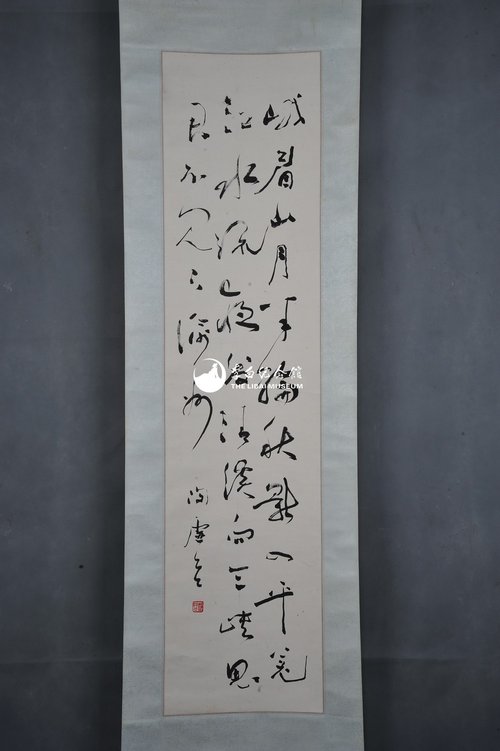 峨眉山月半輪秋影入平羌
江水流夜發清溪向三峽思
君不見下渝州
李白纪念馆
THE LIBAI MUSEUM